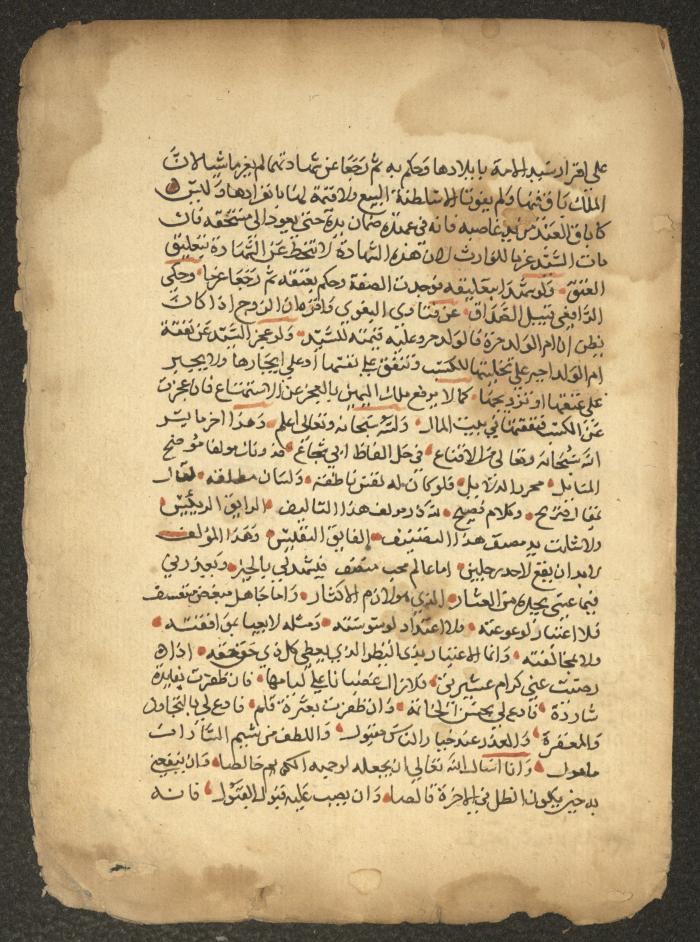 على اقرار سيد الامة بايلادها وحكم به ثم رجعا عن شهادتهما لم يغرما شيا لان
الملك باق فيها ولم يفوتا الا سلطنة البيع ولا قيمة لها بانفرادها وليس
كاباق العبد من يد غاصبه فانه في عهدة ضمان يده حتى يعود الى مستحقه فان
مات السيد غرما للوارث لان هذه الشهادة لا تنحط عن الشهادة بتعليق
العتق ولو شهدا بتعليقه فوجدت الصفة وحكم بعتقه ثم رجعا غرما وحكى
الرافعي قبيل الصداق عن فتاوى البغوي واقره ان الزوج اذا كان
يظن ان ام الولد حرة فالولد حر وعليه قيمته للسيد ولو عجز السيد عن نفقة
ام الولد اجبر على تخليتها للكسب وتنفق على نفسها او على ايجارها ولا يجبر
على عتقها او تزويجها كما لا يرفع ملك اليمين بالعجز عن الاستمتاع فان عجزت
عن الكسب فنفقتها في بيت المال والله سبحانه وتعالى اعلم وهذا اخر ما يسر
الله سبحانه وتعالى من الاقناع في حل الفاظ ابي شجاع فدونك مولفا موضح
المسايل محرر الدلايل فلو كان له نفس ناطقة ولسان مطلقة لقال
بمقال صريح وكلام فصيح لله در مولف هذا التاليف الرايق الرييس
ولا شلت يد مصنف هذا التصنيف الفايق النفيس وهذا المؤلف
لا بد ان يقع لاحد رجلين اما عالم محب منصف فيشهد لي بالخير ويعذرني
فيما عسى يجده من العثار الذي هو لازم الاكثار واما جاهل مبغض متعسف
فلا اعتبار لوعوعته ولا اعتداد بوسوسته ومثله لا يعبا بموافقته
ولا مخالفته وانما الاعتبار بذي النظر الذي يعطي كل ذي حق حقه اذا
رضيت عني كرام عشيرتي فلا زال غضبانا على ليامها فان ظفرت بفايدة
شاردة فادع لي بحسن الخاتمة وان ظفرت بعثرة قلم فادع لي بالتجاوز
والمغفرة والعذر عند خيار الناس مقبول واللطف من شيم السادات
مامول وانا اسال الله تعالى ان يجعله لوجهه الكريم خالصا وان ينفعني
به حين يكون الظل في الاخرة قالصا وان يصب عليه قبول القبول فانه